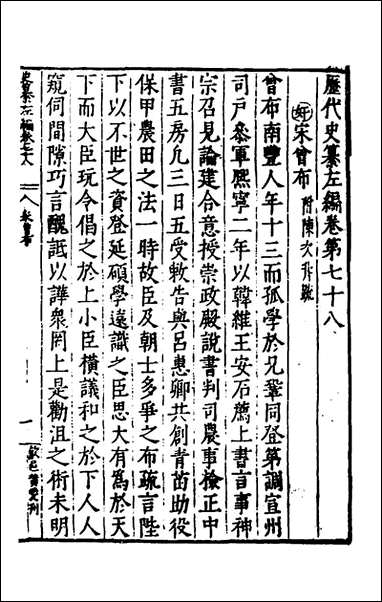 歷代史纂左編卷第七十八
奸 宋曾布 附陳次升疏
曾布南豐人年十三而孤學於兄鞏同登第調宣州
司戶叅軍熙寧二年以韓維王安石薦上書言事神
宗召見論建合意授崇政殿說書判司農事檢正中
書五房凢三日五受敕告與呂惠卿共創青苗助役
保甲農田之法一時故臣及朝士多爭之布疏言陛
下以不世之資登延碩學遠識之臣思大有為於天
下而大臣玩令倡之於上小臣橫議和之於下人人
窺伺間隙巧言醜詆以譁衆罔上是勸沮之術未明
史纂左編卷七十八
宋曾布
一